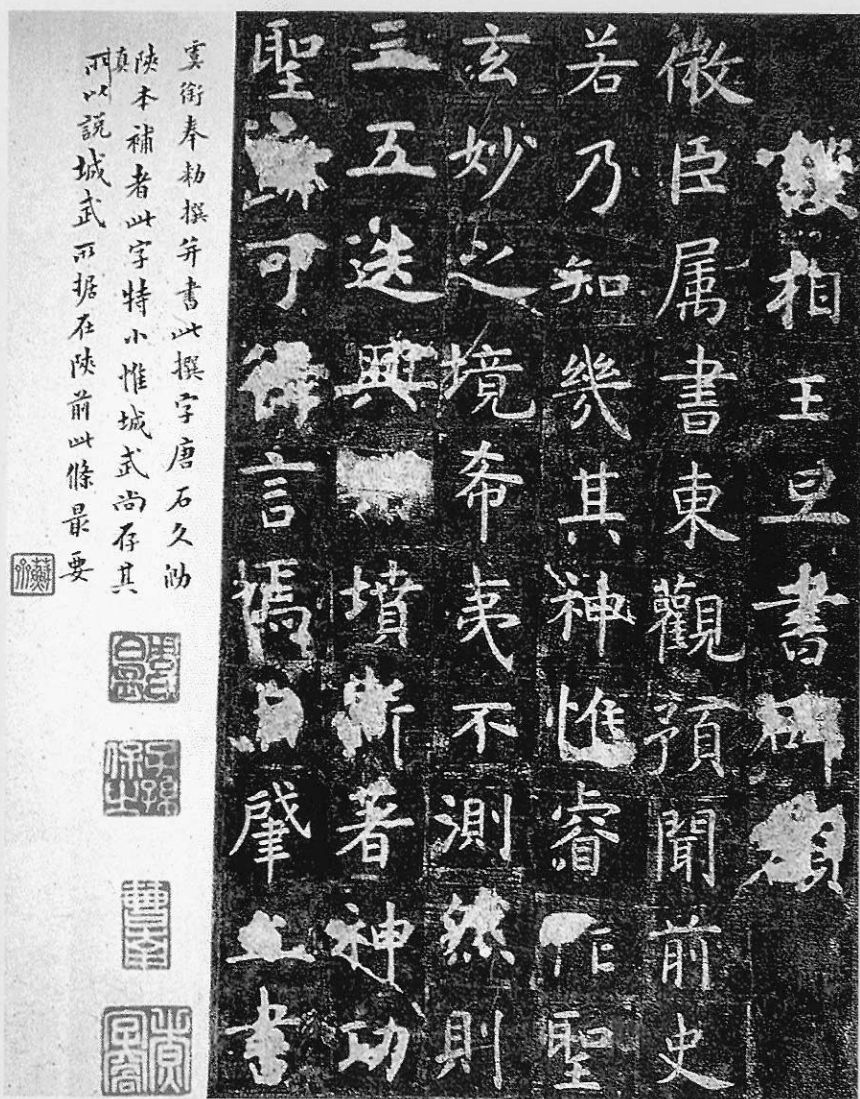 護相王旦書碑額
微臣属書東觀預聞前史
若乃知幾其神惟睿作聖
玄妙之境希夷不測然則
三五迭興典墳斯著神功
聖迹可得言焉自肇立書
虞銜奉勑撰并書此撰字唐石久泐
陝本補者此字特小惟城武尚存其
真
所以說城武所据在陝前此條最要
子孫保之